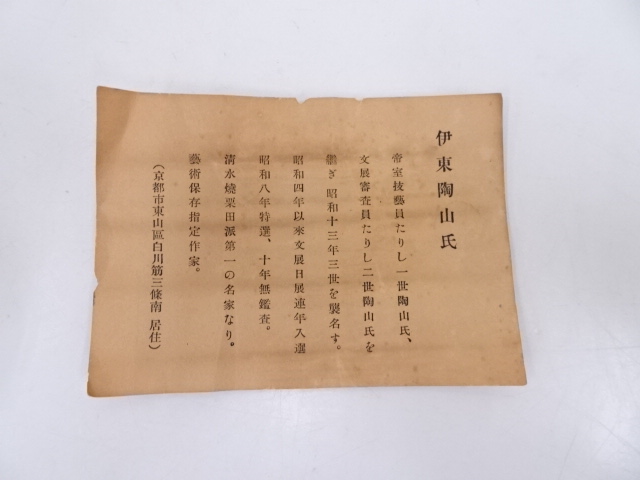 伊東陶山氏
帝室技藝員たりし一世陶山氏、
文展審査員たりし二世陶山氏を
繼ぎ 昭和十三年三世を襲名す。
昭和四年以來文展日展連年入選
昭和八年特選、十年無鑑査。
淸水燒粟田派第一の名家なり。
藝術保存指定作家。
（京都市東山區白川筋三條南 居住）